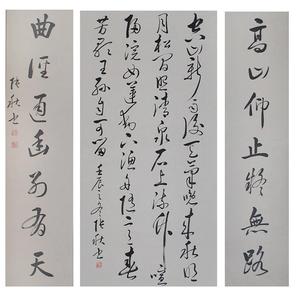 高山仰止疑無路
空山新雨後天氣晚來秋明
月松間照清泉石上流竹喧
歸浣女蓮動下漁舟隨意春
芳歇王孫自可留壬辰之冬張秋书
曲徑通幽別有天
張秋书